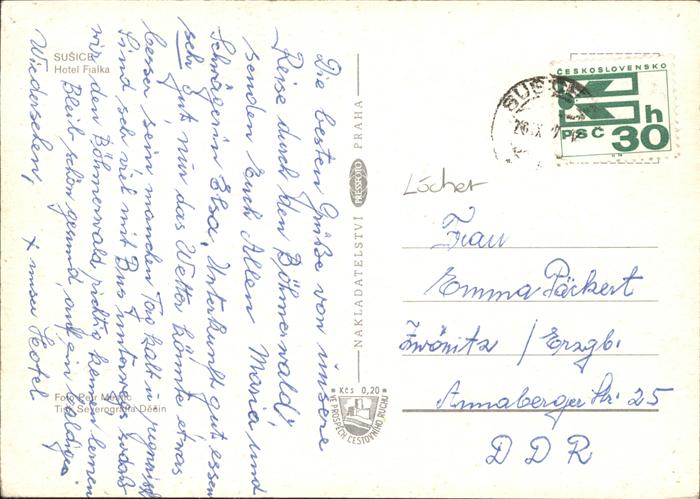 SUŠICE
Hotel Fialka
Die besten Grüße von unsere
Reise durch den Böhmerwald,
senden Euch Allen Maria und
Schwägerin Elsa. Unterkunft gut, essen
sehr gut nur das Wetter könnte etwas
besser sein manchen Tag kalt u. regnerisch
Sind sehr viel mit Bus unterwegs, sodaß
wir den Böhmerwald richtig kennen lernen
Bleib schön gesund, auf ein baldiges
Wiedersehen,
x unser Hotel
Foto Petr
Tisk Severografia Děčín
NAKLADATELSTVÍ PRESSFOTO PRAHA
Kčs 0,20
VE PROSPĚCH CESTOVNÍHO RUCHU
ČESKOSLOVENSKO
h
PSČ 30
SUŠICE
Löcher
Frau
Emma Päckert
Zwönitz / Erzgb.
Annaberger Str. 25
DDR